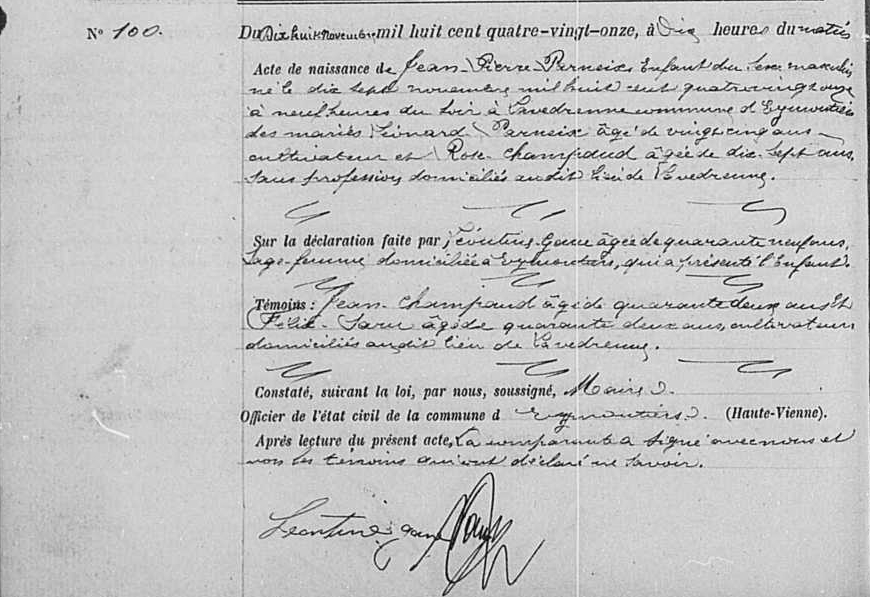 N° 100.
Du Dix huit Novembre mil huit cent quatre-vingt-onze, à Dix heures du matin
Acte de naissance de Jean-Pierre Parneix Enfant du Sexe masculin
né le dix sept novembre mil huit cent quatrevingt onze
à neuf heures du soir à Lavedrenne commune d'Eymoutiers
des mariés Léonard Parneix âgé de vingt cinq ans
cultivateur et Rose Champaud âgée de dix-sept ans,
sans profession, domiciliés audit lieu de Lavedrenne.
Sur la déclaration faite par Léontine Gane âgée de quarante neuf ans,
Sage-femme domiciliée à Eymoutiers, qui a présenté l'Enfant.
Témoins : Jean Champaud âgé de quarante deux ans Et
Félix Saru âgé de quarante deux ans, cultivateurs
domiciliés audit lieu de Lavedrenne.
Constaté, suivant la loi, par nous, soussigné, Maire
Officier de l'état civil de la commune d Eymoutiers. (Haute-Vienne).
Après lecture du présent acte, La comparante a signé avec nous et
non les témoins qui ont déclaré ne savoir.
Leontine gane